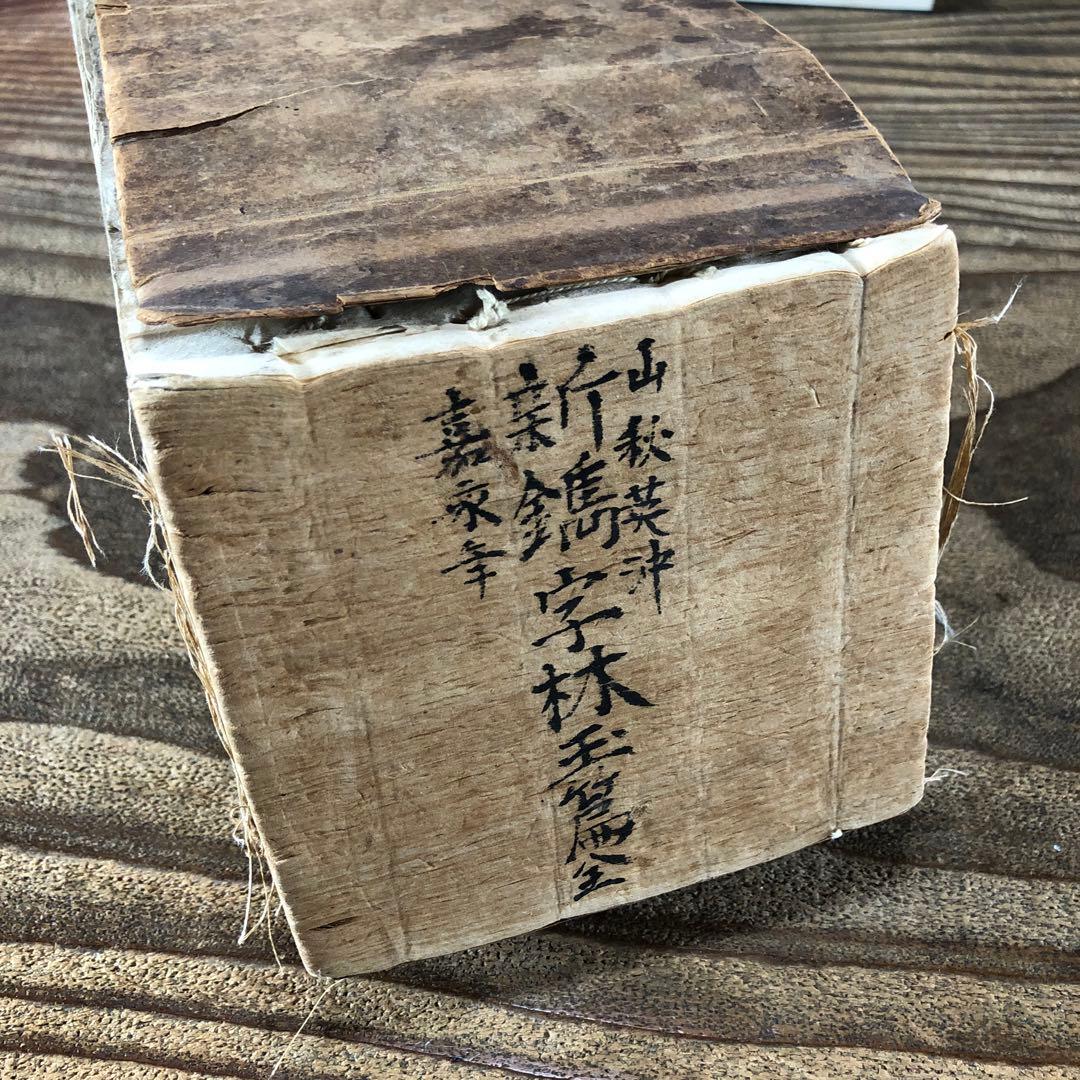 山秋英沖
新鐫字林玉篇全
嘉永年